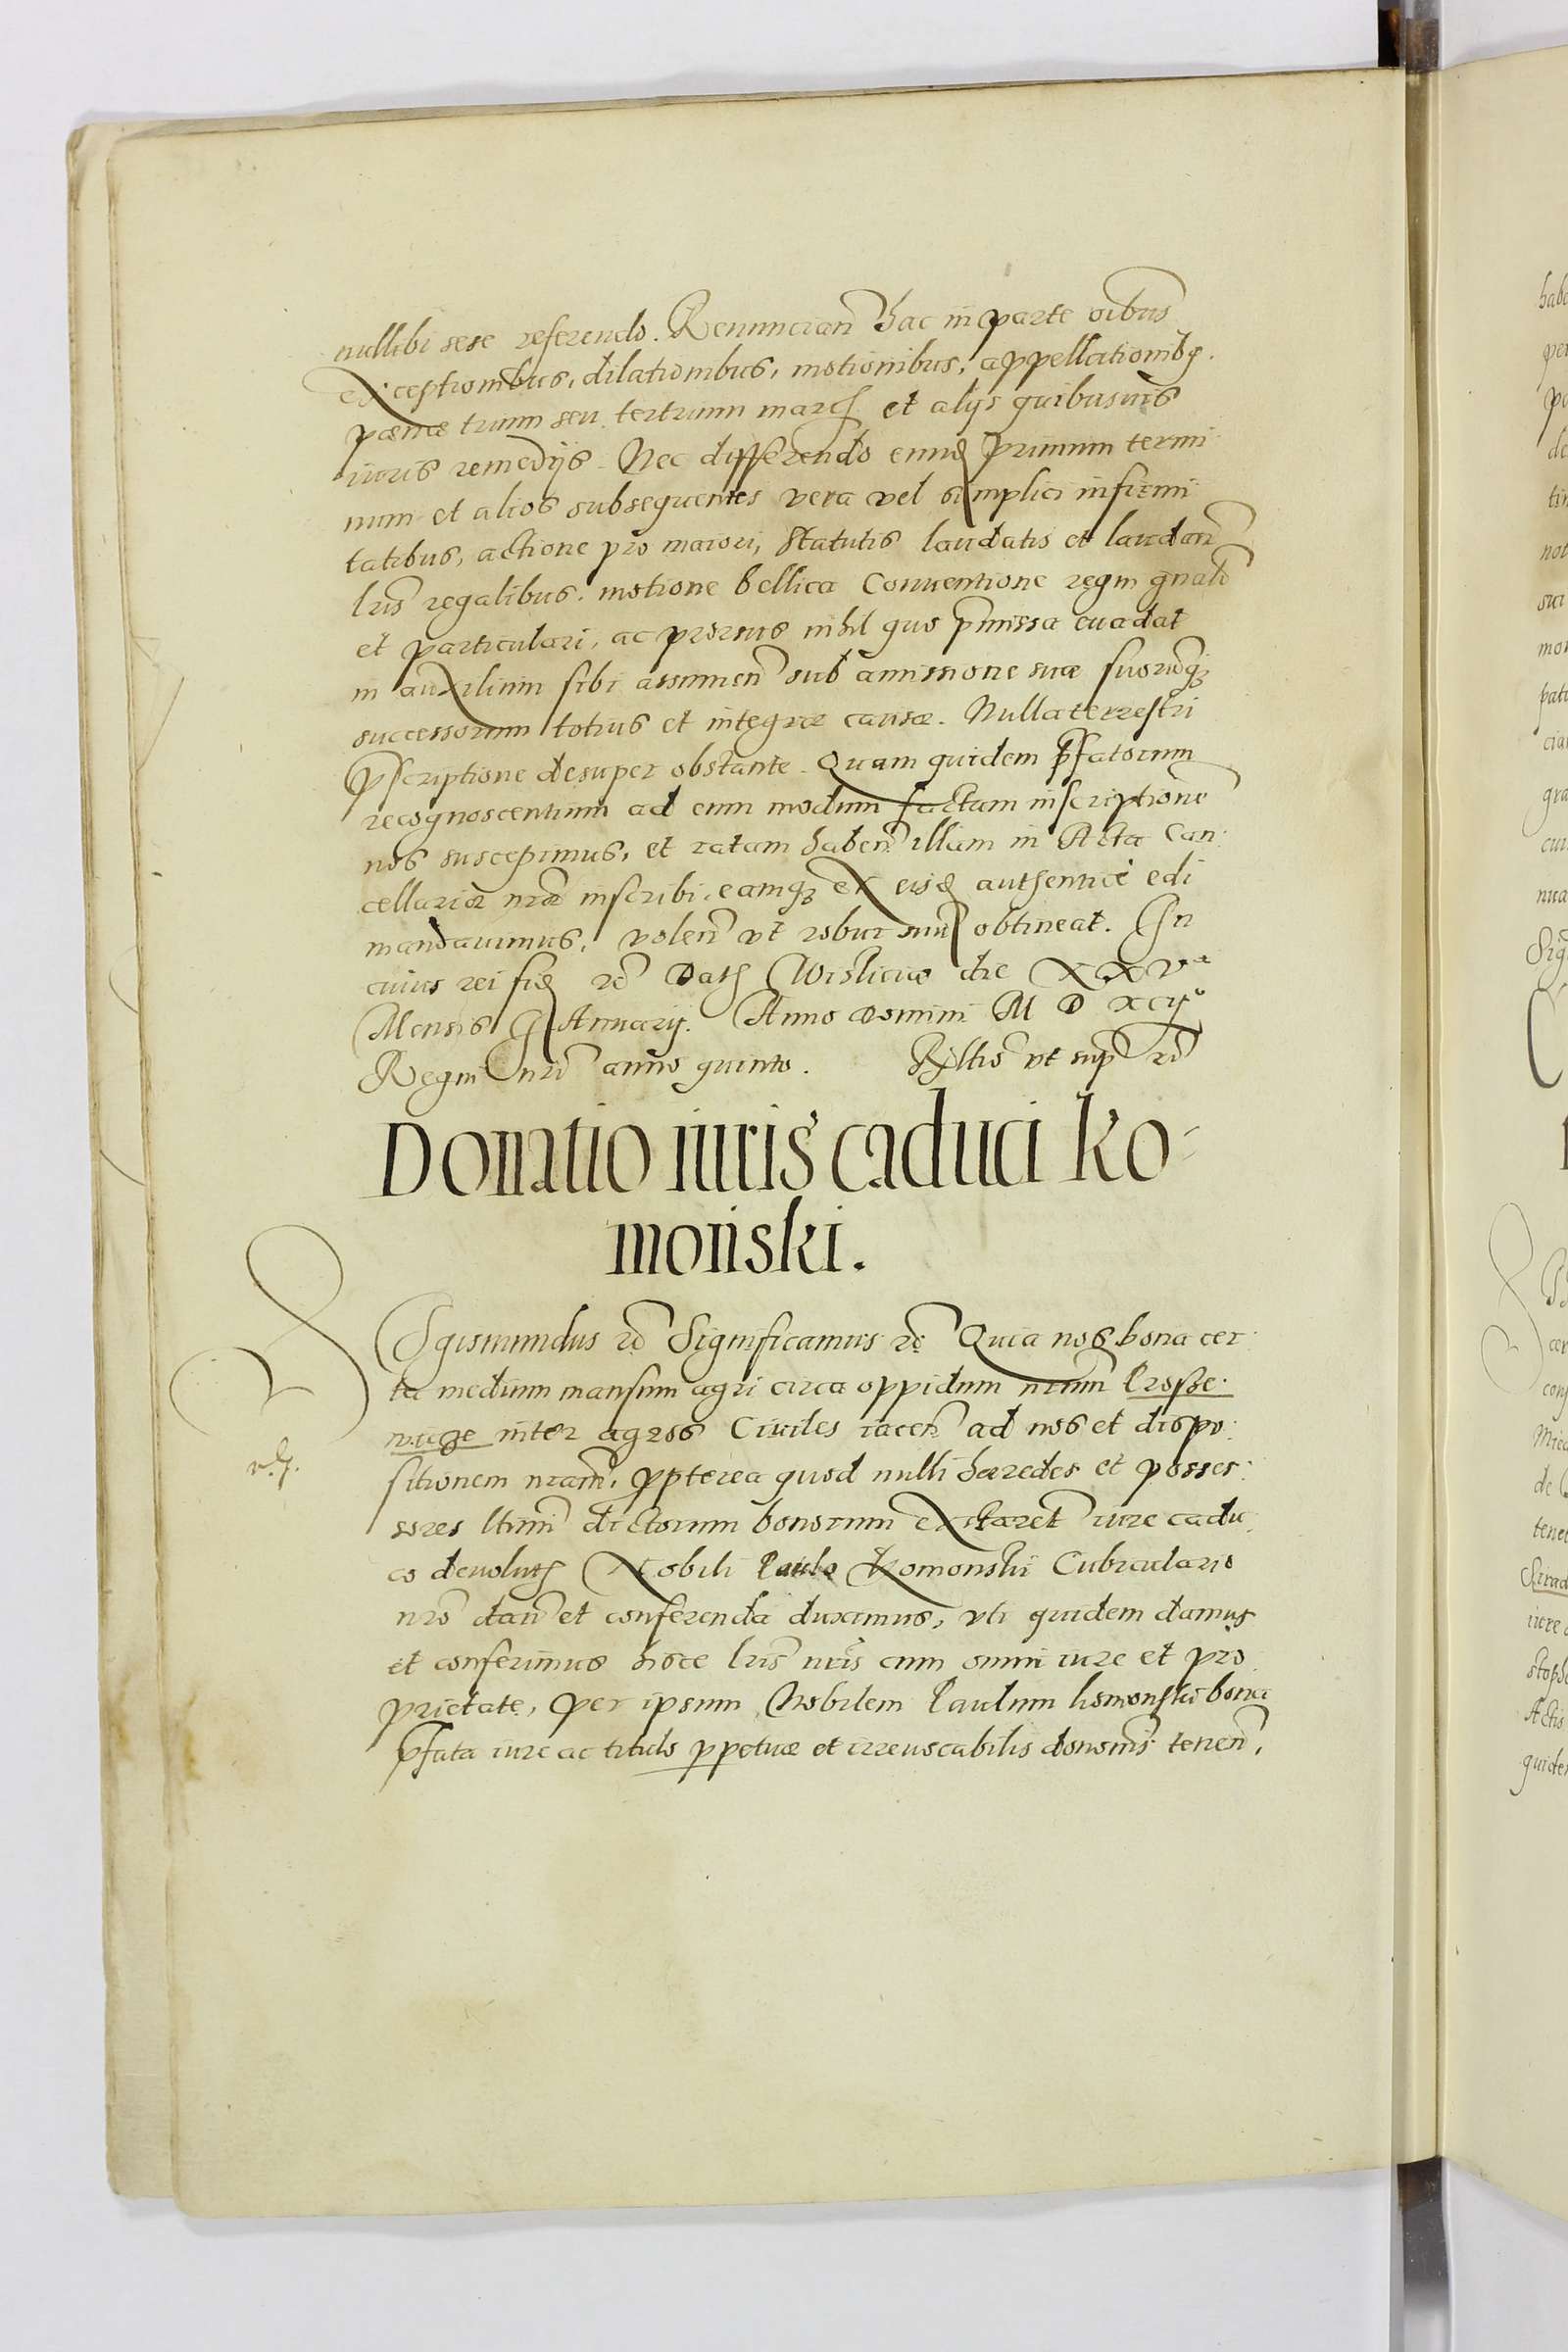 nullibi sese referendo. Renuncian̄ hac in parte oībus
exceptionibus, dilationibus, motionibus, appellationibq.
pœnæ trium seu tertium marcɧ et alijs quibusuis
iuris remedijs. Nec differendo eund primum termi
num et alios subsequentes vera vel simplici infirmi
tatibus, actione pro maiori, statutis laudatis et laudan̄
lrīs regalibus. motione bellica Conuentione regni gn̄ali
et particulari, ac prorsus nihil quo p̄missa euadat
in auxilium sibi assumen̄ sub amissione suæ suorūq3
successorum totius et integræ causæ. Nulla terrestri
p̄scriptione desuper obstante. Quam quidem p̄fatorum
recognoscentium ad eum modum factam inscriptionē
nos suscepimus, et ratam haben̄ illam in Acta Can:
cellariæ nr̄æ inscribi, eamq3 ex eisd authenticè edi
mandauimus, volen̄ vt robur suū obtineat. In
cuius rei fid etc̄ Datɧ Wisliciæ die XXVa
Mensis Ianuarij. Anno Domini M D XCijo
Regni nr̄i anno quinto. Rx̄ltio vt sup̄ etc̄
Donatio iuris caduci Ko-
moński.
Sigismundus etc̄ Significamus etc̄ Quia nos bona cer:
ta medium mansum agri circa oppidum nr̄um Prosze:
wicze inter agros Ciuiles iacen̄ ad nos et dispo:
sitionem nr̄am, ꝓpterea quod nulli hæredes et posses:
sores ltimi dictorum bonorum extaren̄t iure cadu:
co deuolutɧ Nobili Paulo Komonski Cubiculario
nr̄o dan̄ et conferenda duximus, vti quidem damus
et conferimus hisce lrīs nr̄is cum omni iure et pro
prietate, Per ipsum Nobilem Paulum Komonski bona
p̄fata iure ac titulo ꝑpetuæ et irreuocabilis donōnis tenen̄,